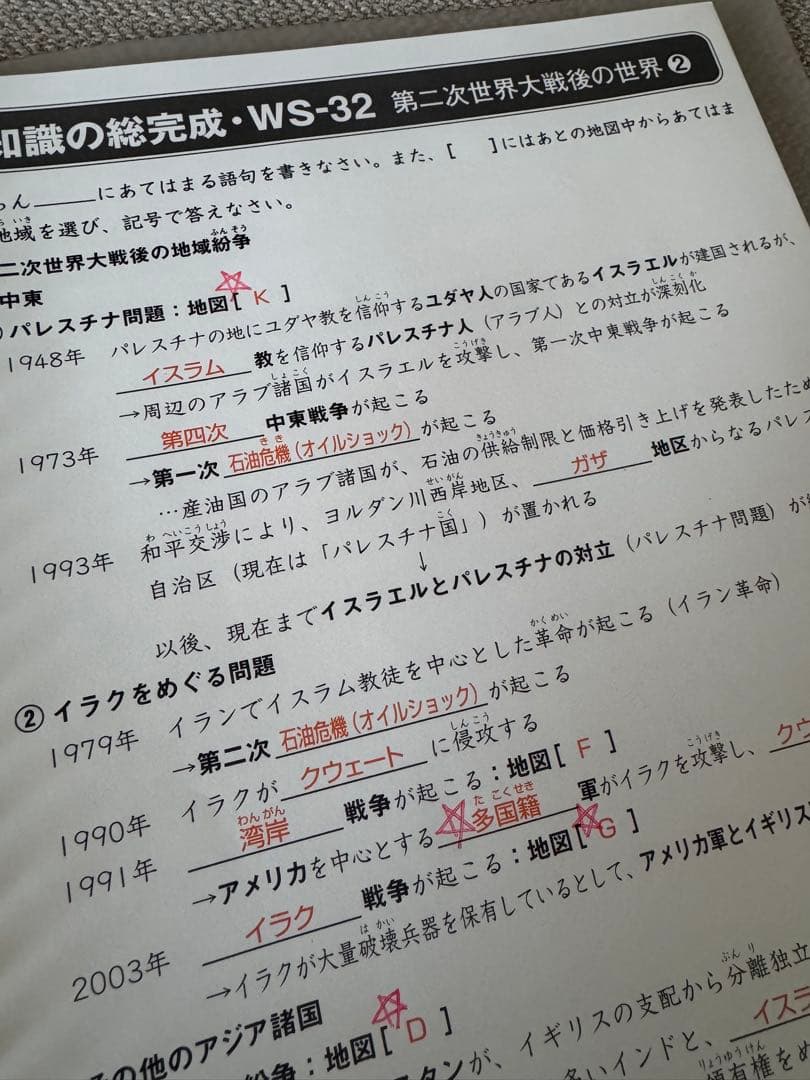 知識の総完成・WS-32 第二次世界大戦後の世界❷
にあてはまる語句を書きなさい。また、[ ]にはあとの地図中からあてはま
地域を選び、記号で答えなさい。
二次世界大戦後の地域紛争
中東
パレスチナ問題：地図[ K ]
1948年 パレスチナの地にユダヤ教を信仰するユダヤ人の国家であるイスラエルが建国されるが、
イスラム 教を信仰するパレスチナ人（アラブ人）との対立が深刻化
→周辺のアラブ諸国がイスラエルを攻撃し、第一次中東戦争が起こる
1973年 第四次 中東戦争が起こる
→第一次 石油危機(オイルショック) が起こる
…産油国のアラブ諸国が、石油の供給制限と価格引き上げを発表したため
1993年 和平交渉により、ヨルダン川西岸地区、 ガザ 地区からなるパレス
自治区（現在は「パレスチナ国」）が置かれる
↓
以後、現在までイスラエルとパレスチナの対立（パレスチナ問題）が
② イラクをめぐる問題
1979年 イランでイスラム教徒を中心とした革命が起こる（イラン革命）
→第二次 石油危機(オイルショック) が起こる
1990年 イラクが クウェート に侵攻する
1991年 湾岸 戦争が起こる：地図[ F ]
→アメリカを中心とする 多国籍 軍がイラクを攻撃し、 クウ
2003年 イラク 戦争が起こる：地図[ G ]
→イラクが大量破壊兵器を保有しているとして、アメリカ軍とイギリス
その他のアジア諸国
紛争：地図[ D ]
タンが、イギリスの支配から分離独立
多いインドと、 イスラ
領有権をめ